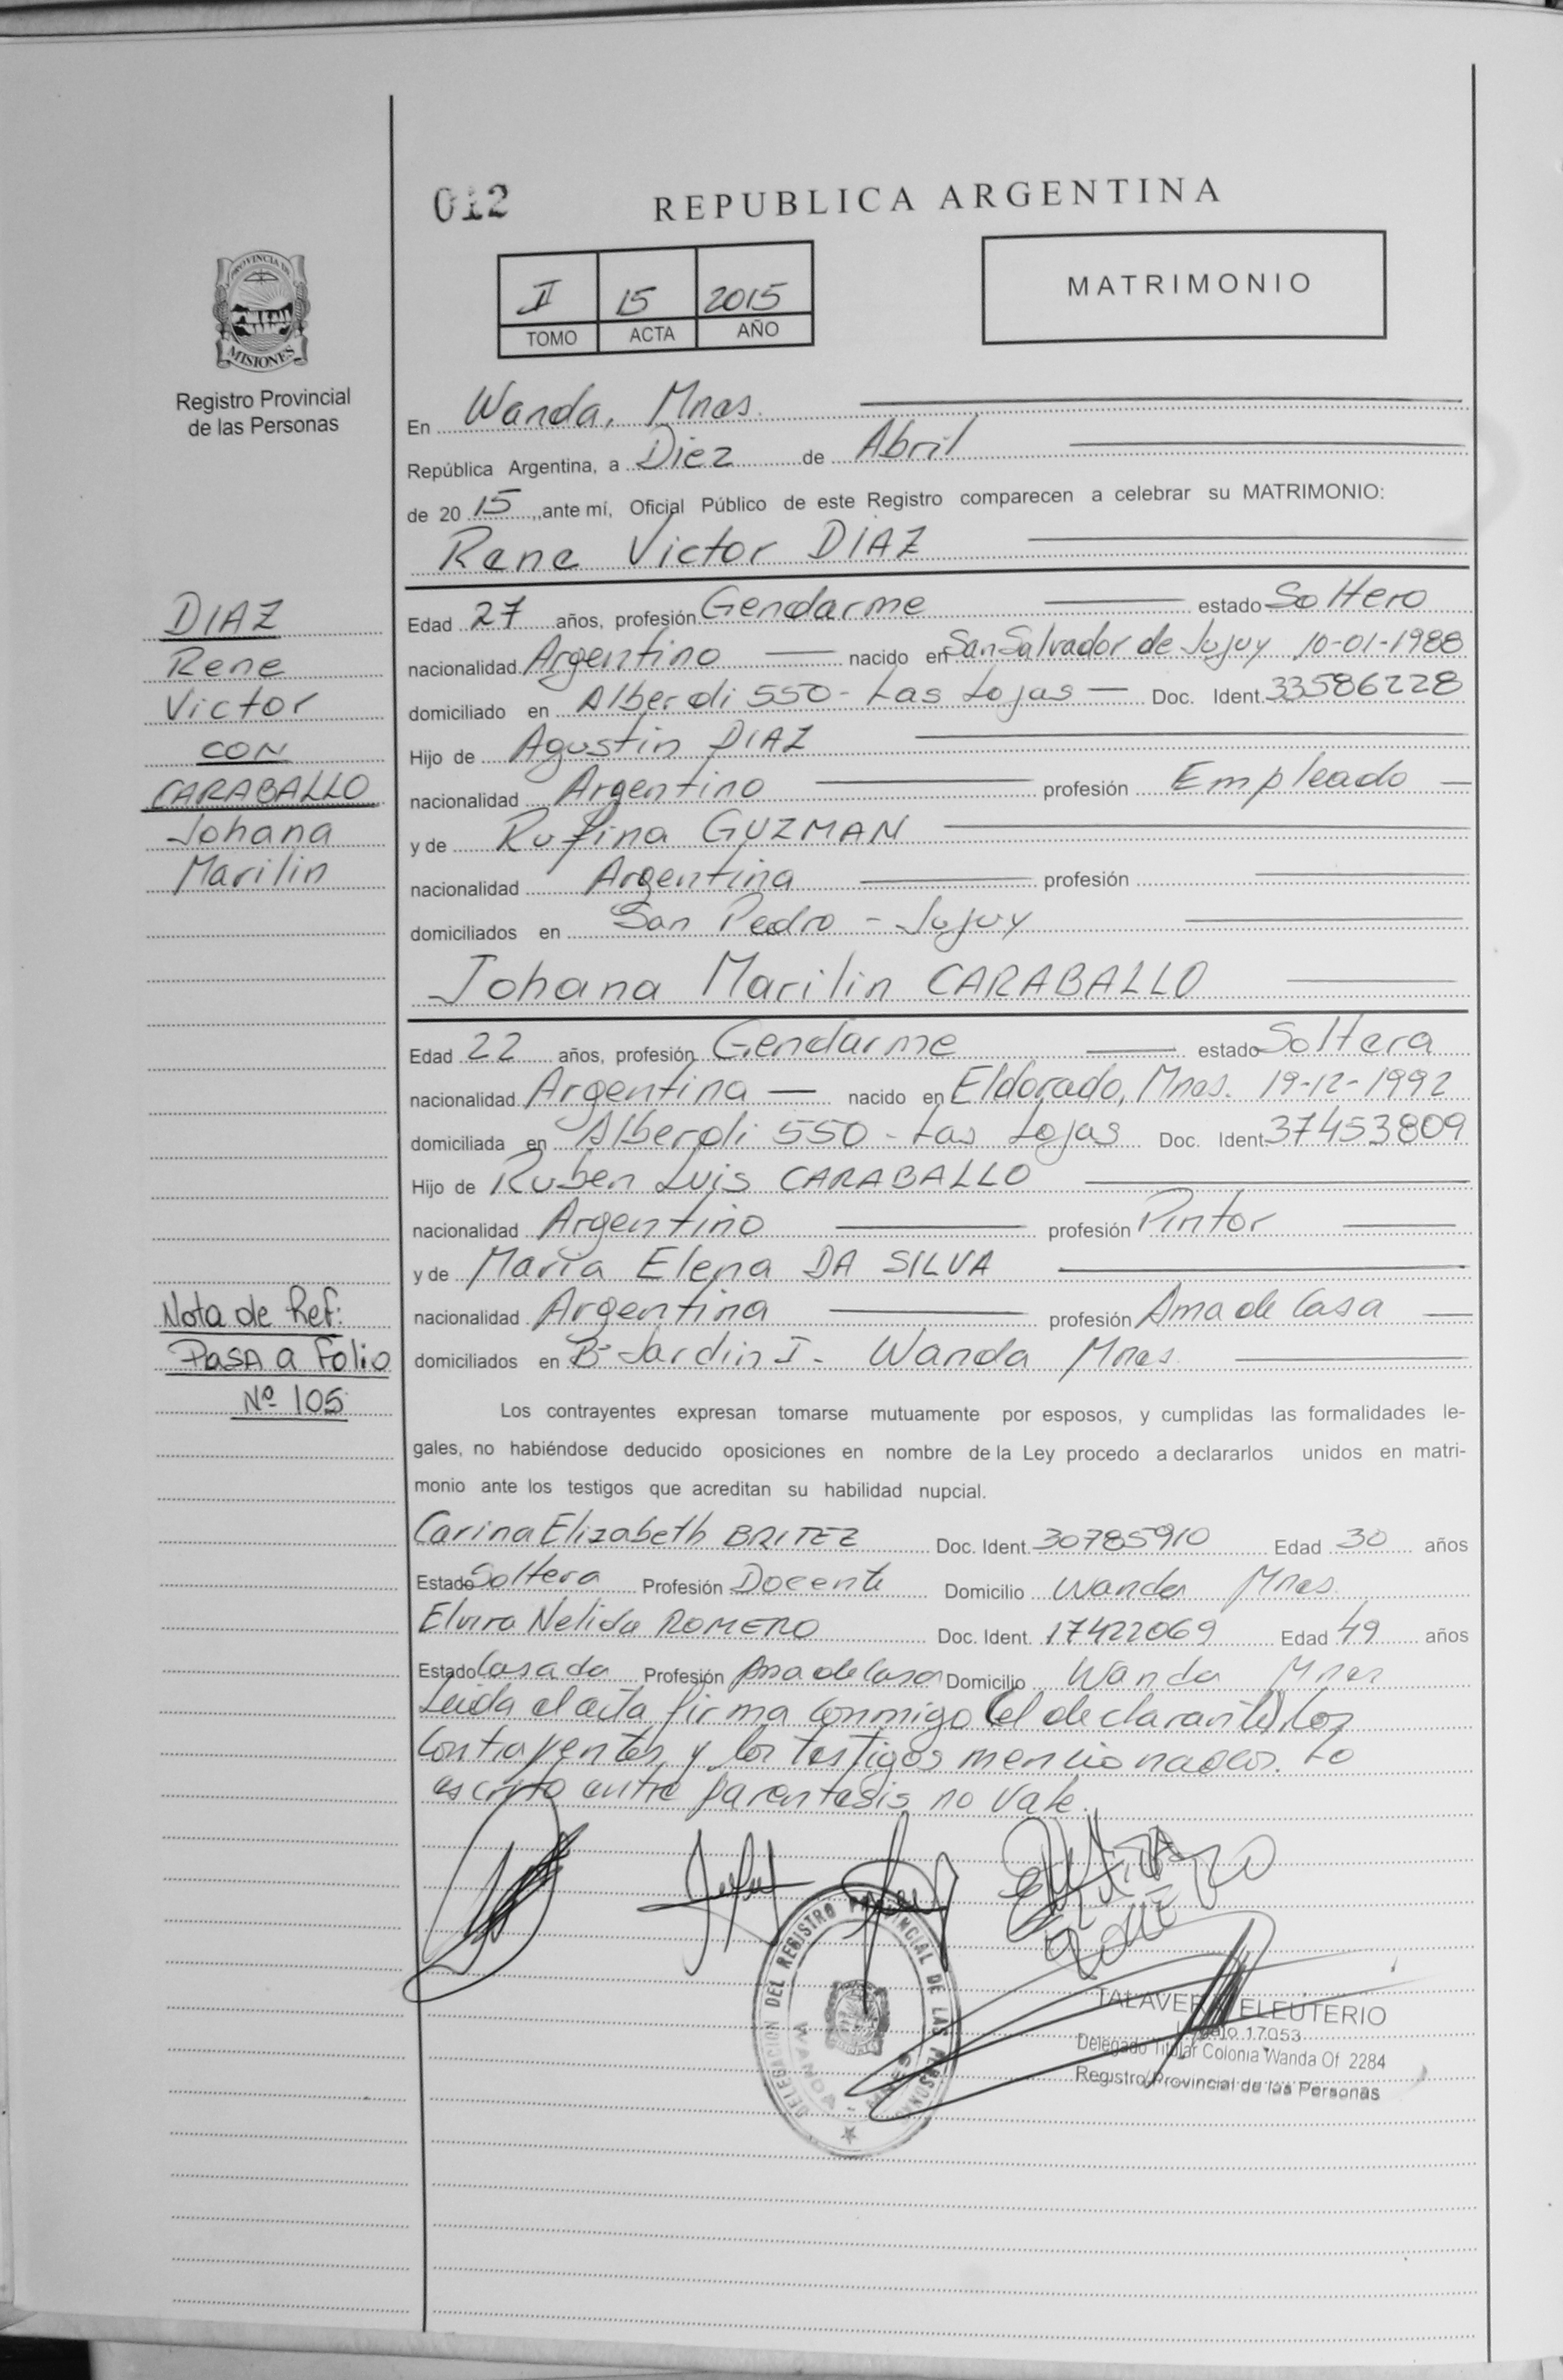 012
REPUBLICA ARGENTINA
PROVINCIA DE
MISIONES
Registro Provincial
de las Personas
II 15 2015
TOMO ACTA AÑO
MATRIMONIO
En Wanda, Mnes.
República Argentina, a Diez de Abril
de 20 15 ,ante mí, Oficial Público de este Registro comparecen a celebrar su MATRIMONIO:
Rene Victor DIAZ
DIAZ
Rene
Victor
CON
CARABALLO
Johana
Marilin
Edad 27 años, profesión Gendarme estado Soltero
nacionalidad Argentino nacido en San Salvador de Jujuy 10-01-1988
domiciliado en Alberdi 550 - Las Lojas Doc. Ident. 33586228
Hijo de Agustin DIAZ
nacionalidad Argentino profesión Empleado
y de Rufina GUZMAN
nacionalidad Argentina profesión
domiciliados en San Pedro - Jujuy
Johana Marilin CARABALLO
Edad 22 años, profesión Gendarme estado Soltera
nacionalidad Argentina nacido en Eldorado, Mnes. 19-12-1992
domiciliada en Alberdi 550 - Las Lojas Doc. Ident. 37453809
Hijo de Ruben Luis CARABALLO
nacionalidad Argentino profesión Pintor
y de Maria Elena DA SILVA
nacionalidad Argentina profesión Ama de Casa
domiciliados en B° Jardin I - Wanda Mnes.
Nota de Ref:
Pasa a Folio
Nº 105
Los contrayentes expresan tomarse mutuamente por esposos, y cumplidas las formalidades le-
gales, no habiéndose deducido oposiciones en nombre de la Ley procedo a declararlos unidos en matri-
monio ante los testigos que acreditan su habilidad nupcial.
Carina Elizabeth BRITEZ Doc. Ident. 30785910 Edad 30 años
Estado Soltera Profesión Docente Domicilio Wanda Mnes.
Elvira Nelida ROMERO Doc. Ident. 17422069 Edad 49 años
Estado Casada Profesión Ama de Casa Domicilio Wanda Mnes
Leida el acta firma conmigo (el declarante) los
contrayentes y los testigos mencionados. Lo
escrito entre parentesis no vale.
ELVIRA
ROMERO
DELEGACION DEL REGISTRO PROVINCIAL DE LAS PERSONAS
WANDA
TALAVERA ELEUTERIO
17053
Delegado Titular Colonia Wanda Of. 2284
Registro Provincial de las Personas